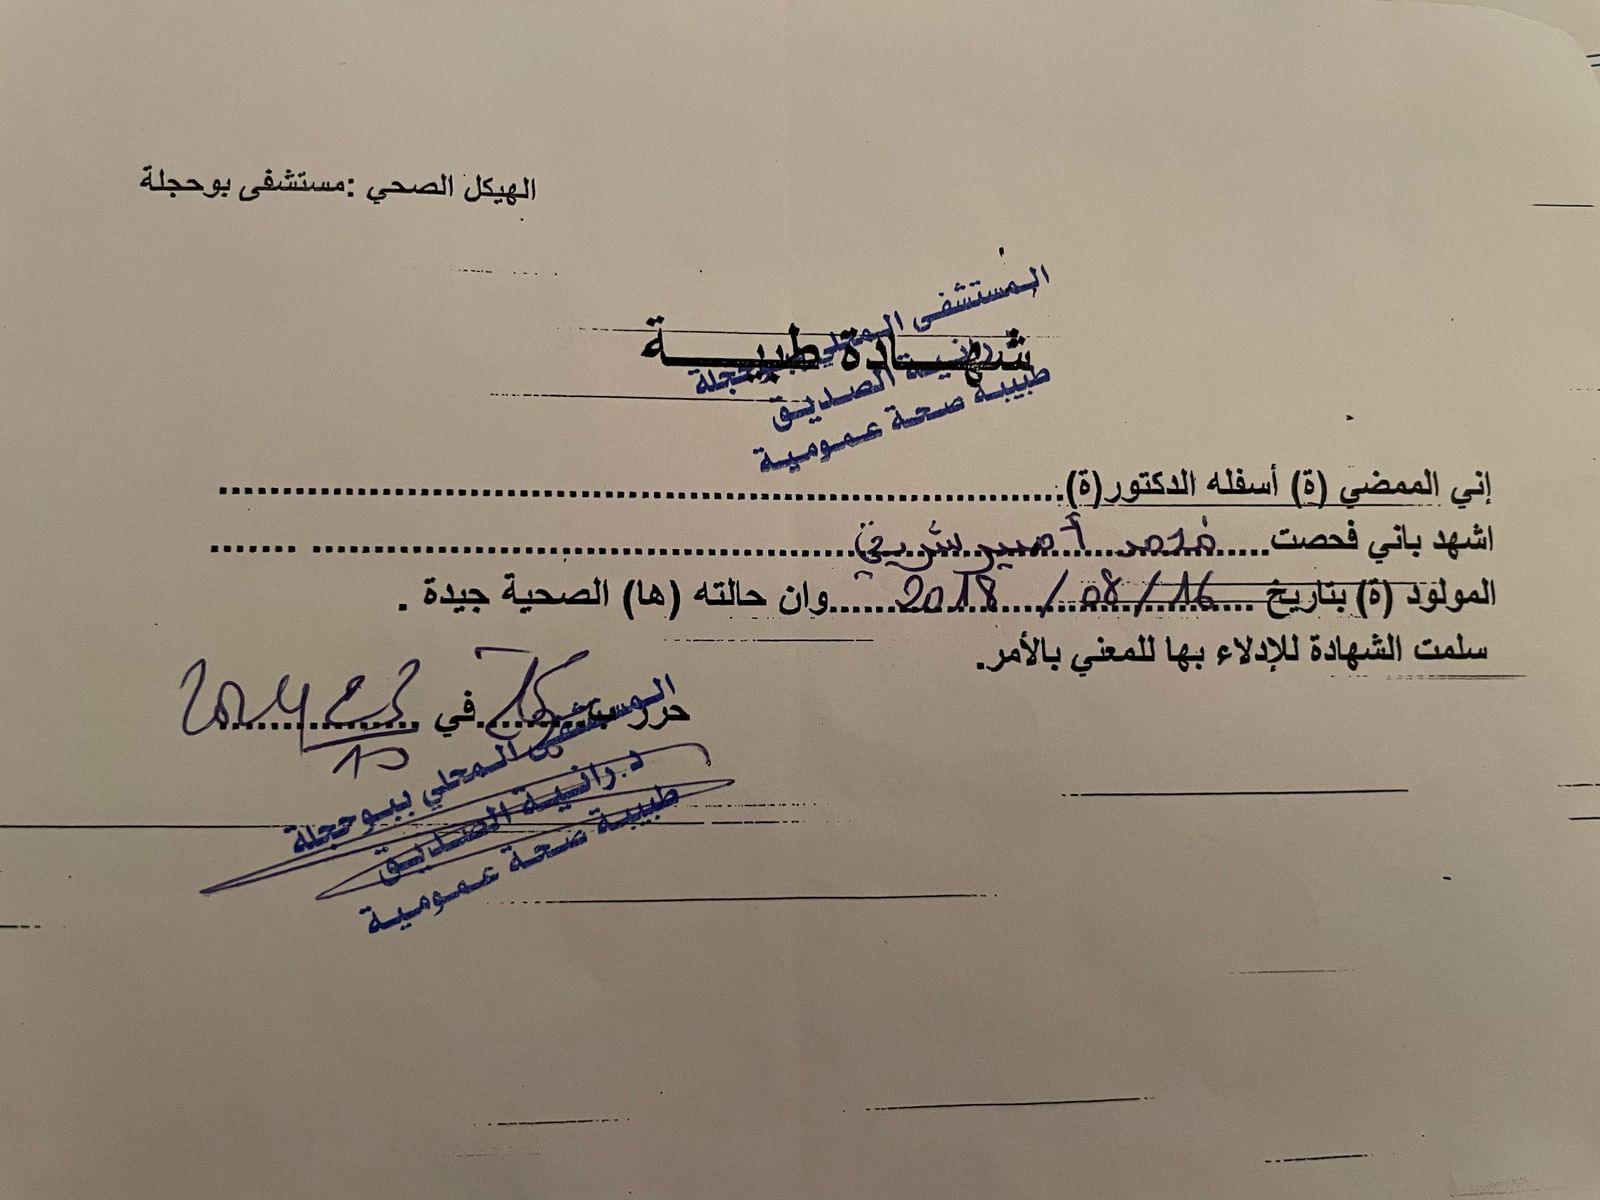 الهيكل الصحي :مستشفى بوحجلة
شهـــادة طبيـــــة
المستشفى المحلي ببوحجلة
د.رانية الصديق
طبيبة صحة عمومية
إني الممضي (ة) أسفله الدكتور(ة)..........
اشهد باني فحصت.....محمد أمير شريفي..........
المولود (ة) بتاريخ ...16/08/2018...وان حالته (ها) الصحية جيدة .
سلمت الشهادة للإدلاء بها للمعني بالأمر.
حرر ب.......... في .......... 2024
المستشفى المحلي ببوحجلة
د.رانية الصديق
طبيبة صحة عمومية